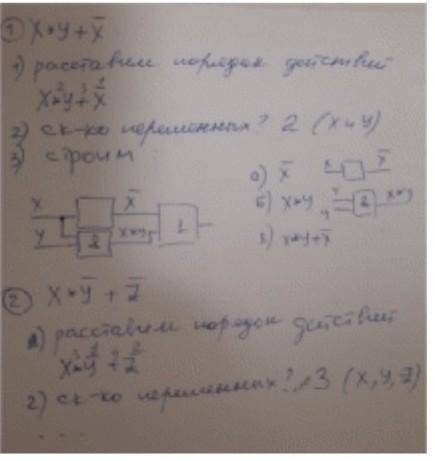 ① x*y+x̄
1) расставим порядок действий
2 3 1
x*y+x̄
2) ск-ко переменных? 2 (x и y)
3) строим:
а) x̄
x x̄
б) x*y
x
y
&
x*y
в) x*y+x̄
x x̄
y & x*y
1
② x*ȳ+z̄
1) расставим порядок действий
3 1 4 2
x*ȳ+z̄
2) ск-ко переменных? 3 (x, y, z)
...